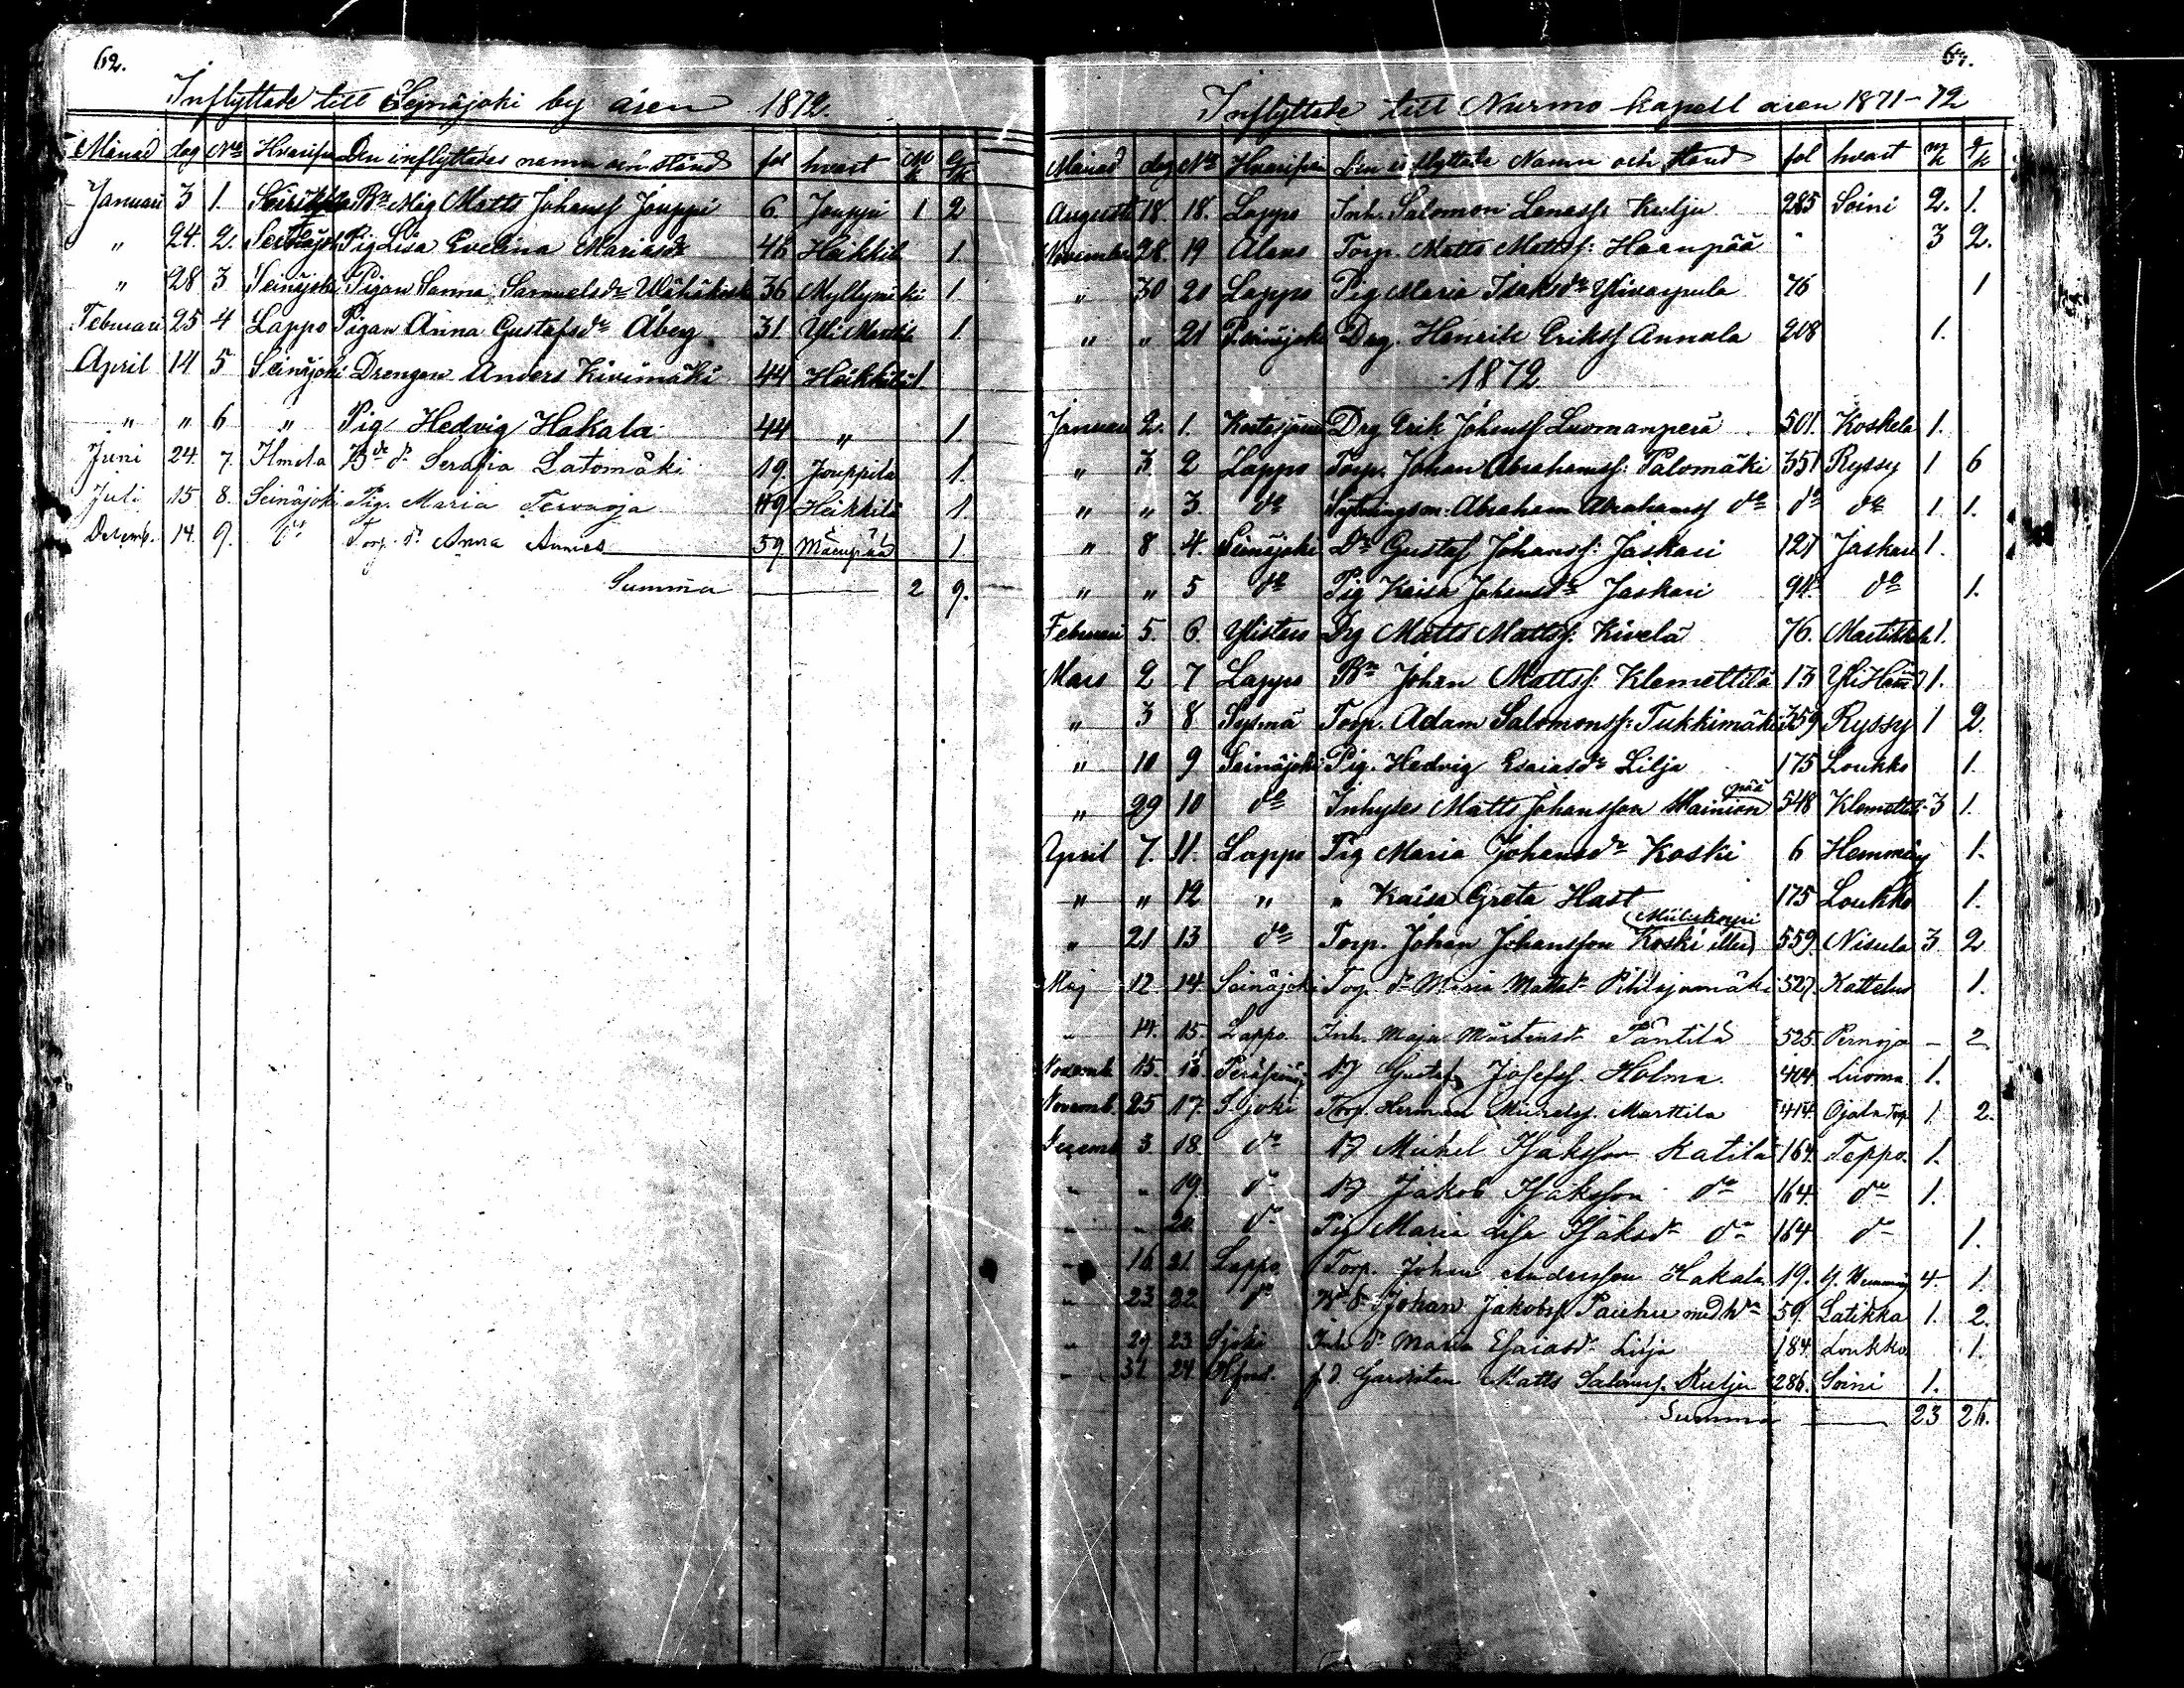 62.
Inflyttade till Seinäjoki by åren 1872.
Månad dag No Hvarifrån Den inflyttades namn och stånd fol hvart M k Q k
Januari 3 1. Bn Mig Matts Johanss Jouppi 6 Jouppi 1 2
" 24. 2. Seinäjoki Pig Lisa Evelina Mariasdr 46 Heikkil 1.
" 28 3 Seinäjoki Pigan Sanna Samuelsdr 36 Myllymäki 1
Februari 25 4 Lappo Pigan Anna Gustafsdr Åberg 31 Yli Marttil 1.
April 14 5 Seinäjoki Drengen Anders Kivimäki 44 Heikkilä 1
" " 6 " Pig Hedvig Hakala 44 " 1
Juni 24. 7. Ilmola Bde dr Serafia Latomäki 19. Jouppila 1.
Juli 15 8. Seinäjoki Pig. Maria Tervaoja 49 Heikkilä 1.
Decemb. 14. 9. do Torp. dr Anna 59 Mäenpää 1
Summa 2 9.
63.
Inflyttade till Nurmo kapell åren 1871-72
Månad dag No Hvarifrån Den inflyttade Namn och stånd fol hvart m k q k
Augusti 18. 18. Lappo Inh. Salomon Kulju 285 Soini 2. 1.
November 28. 19 Alavo Torp. Matts Mattss: Haanpää " 3 2.
" 30 20 Lappo Pig Maria Isaksdr 76 1
" " 21 Peräsjoki Drg. Henrik Erikss Annala 208 1.
1872
Januari 2. 1. Drg Erik Johanss Luomanperä 501. Koskela 1.
" 3 2 Lappo Torp. Johan Abrahamss: Palomäki 351 Ryssy 1 6
" " 3 do Sytningsm: Abraham Abrahamss do do do 1. 1.
" 8 4. Seinäjoki Dr Gustaf Johanss: Jaskari 121 Jaskari 1.
" " 5 do Pig Kaisa Johansdr Jaskari 94 do 1.
Februari 5. 6. Ylistaro Drg Matts Mattss: Kivelä 76. Martikkala 1.
Mars 2 7 Lappo Bn Johan Mattss: Klemettilä 13 Yli Hem 1.
" 3 8 Sysmä Torp. Adam Salomonss: Tukkimäki 359 Ryssy 1 2.
" 10 9 Seinäjoki Pig. Hedvig Esaiasdr Lilja 175 Loukko 1.
" 29 10 do Inhyses Matts Johansson Mainionpää 548 Klemettil 3 1.
April 7. 11. Lappo Pig Maria Johansdr Koski 6 Hemming 1.
" " 12 " " Kaisa Greta Hast 175 Loukko 1.
" 21 13 do Torp. Johan Johansson Koski eller 559. Nisula 3 2
Maj 12 14. Seinäjoki Torp. dr Maria Mattsdr Pihlajamäki 527. Kattelus 1.
" 14. 15. Lappo. Inh. Maja Mårtensdr Päntilä 525. Pernoja - 2
Novemb. 15. 16. Gustaf Josefss. Holma. 404. Luoma. 1.
Novemb. 25 17. S.joki Torp. Herman Marttila 414. Ojala torp. 1 2.
Decemb 3. 18. do Michel Isaksson Katila 164. Teppo. 1.
" " 19. do Jakob Isaksson do 164. do 1.
" " 20. do Pig Maria Lisa Isaksdr do 164 do 1.
" 16 21. Lappo. Torp. Johan Andersson Hakala 19. Y. Hemming 4. 1
" 23 22. do Johan Jakobss. med hu 59. Latikka 1. 2.
" 29 23 Sjoki Inh dr Maria Esaiasdr Lilja 184. Loukko. 1.
" 31 24. Hfors. f.d. Gardisten Matts Saloms. Kulju 286. Soini 1.
Summa 23 26.